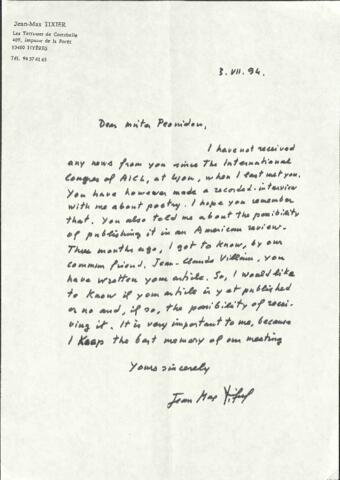 Jean-Max TIXIER
Les Terrasses de Costebelle
409, Impasse de la Forêt
83400 HYÈRES
Tél. 94 57 41 63
3. VII. 94.
Dear Anita
I have not received
any news from you since The International
Congres of AICL, at Lyon, when I last met you.
You have however made a recorded-interview
with me about poetry. I hope you remember
that. You also told me about the possibility
of publishing it in an American review.
Three months ago, I got to know, by our
common friend, Jean-Claude Villain, you
have written your article. So, I would like
to know if your article is yet published
or no and, if so, the possibility of recei-
ving it. It is very important to me, because
I keep the best memory of our meeting
Yours sincerely
Jean Max Tixier